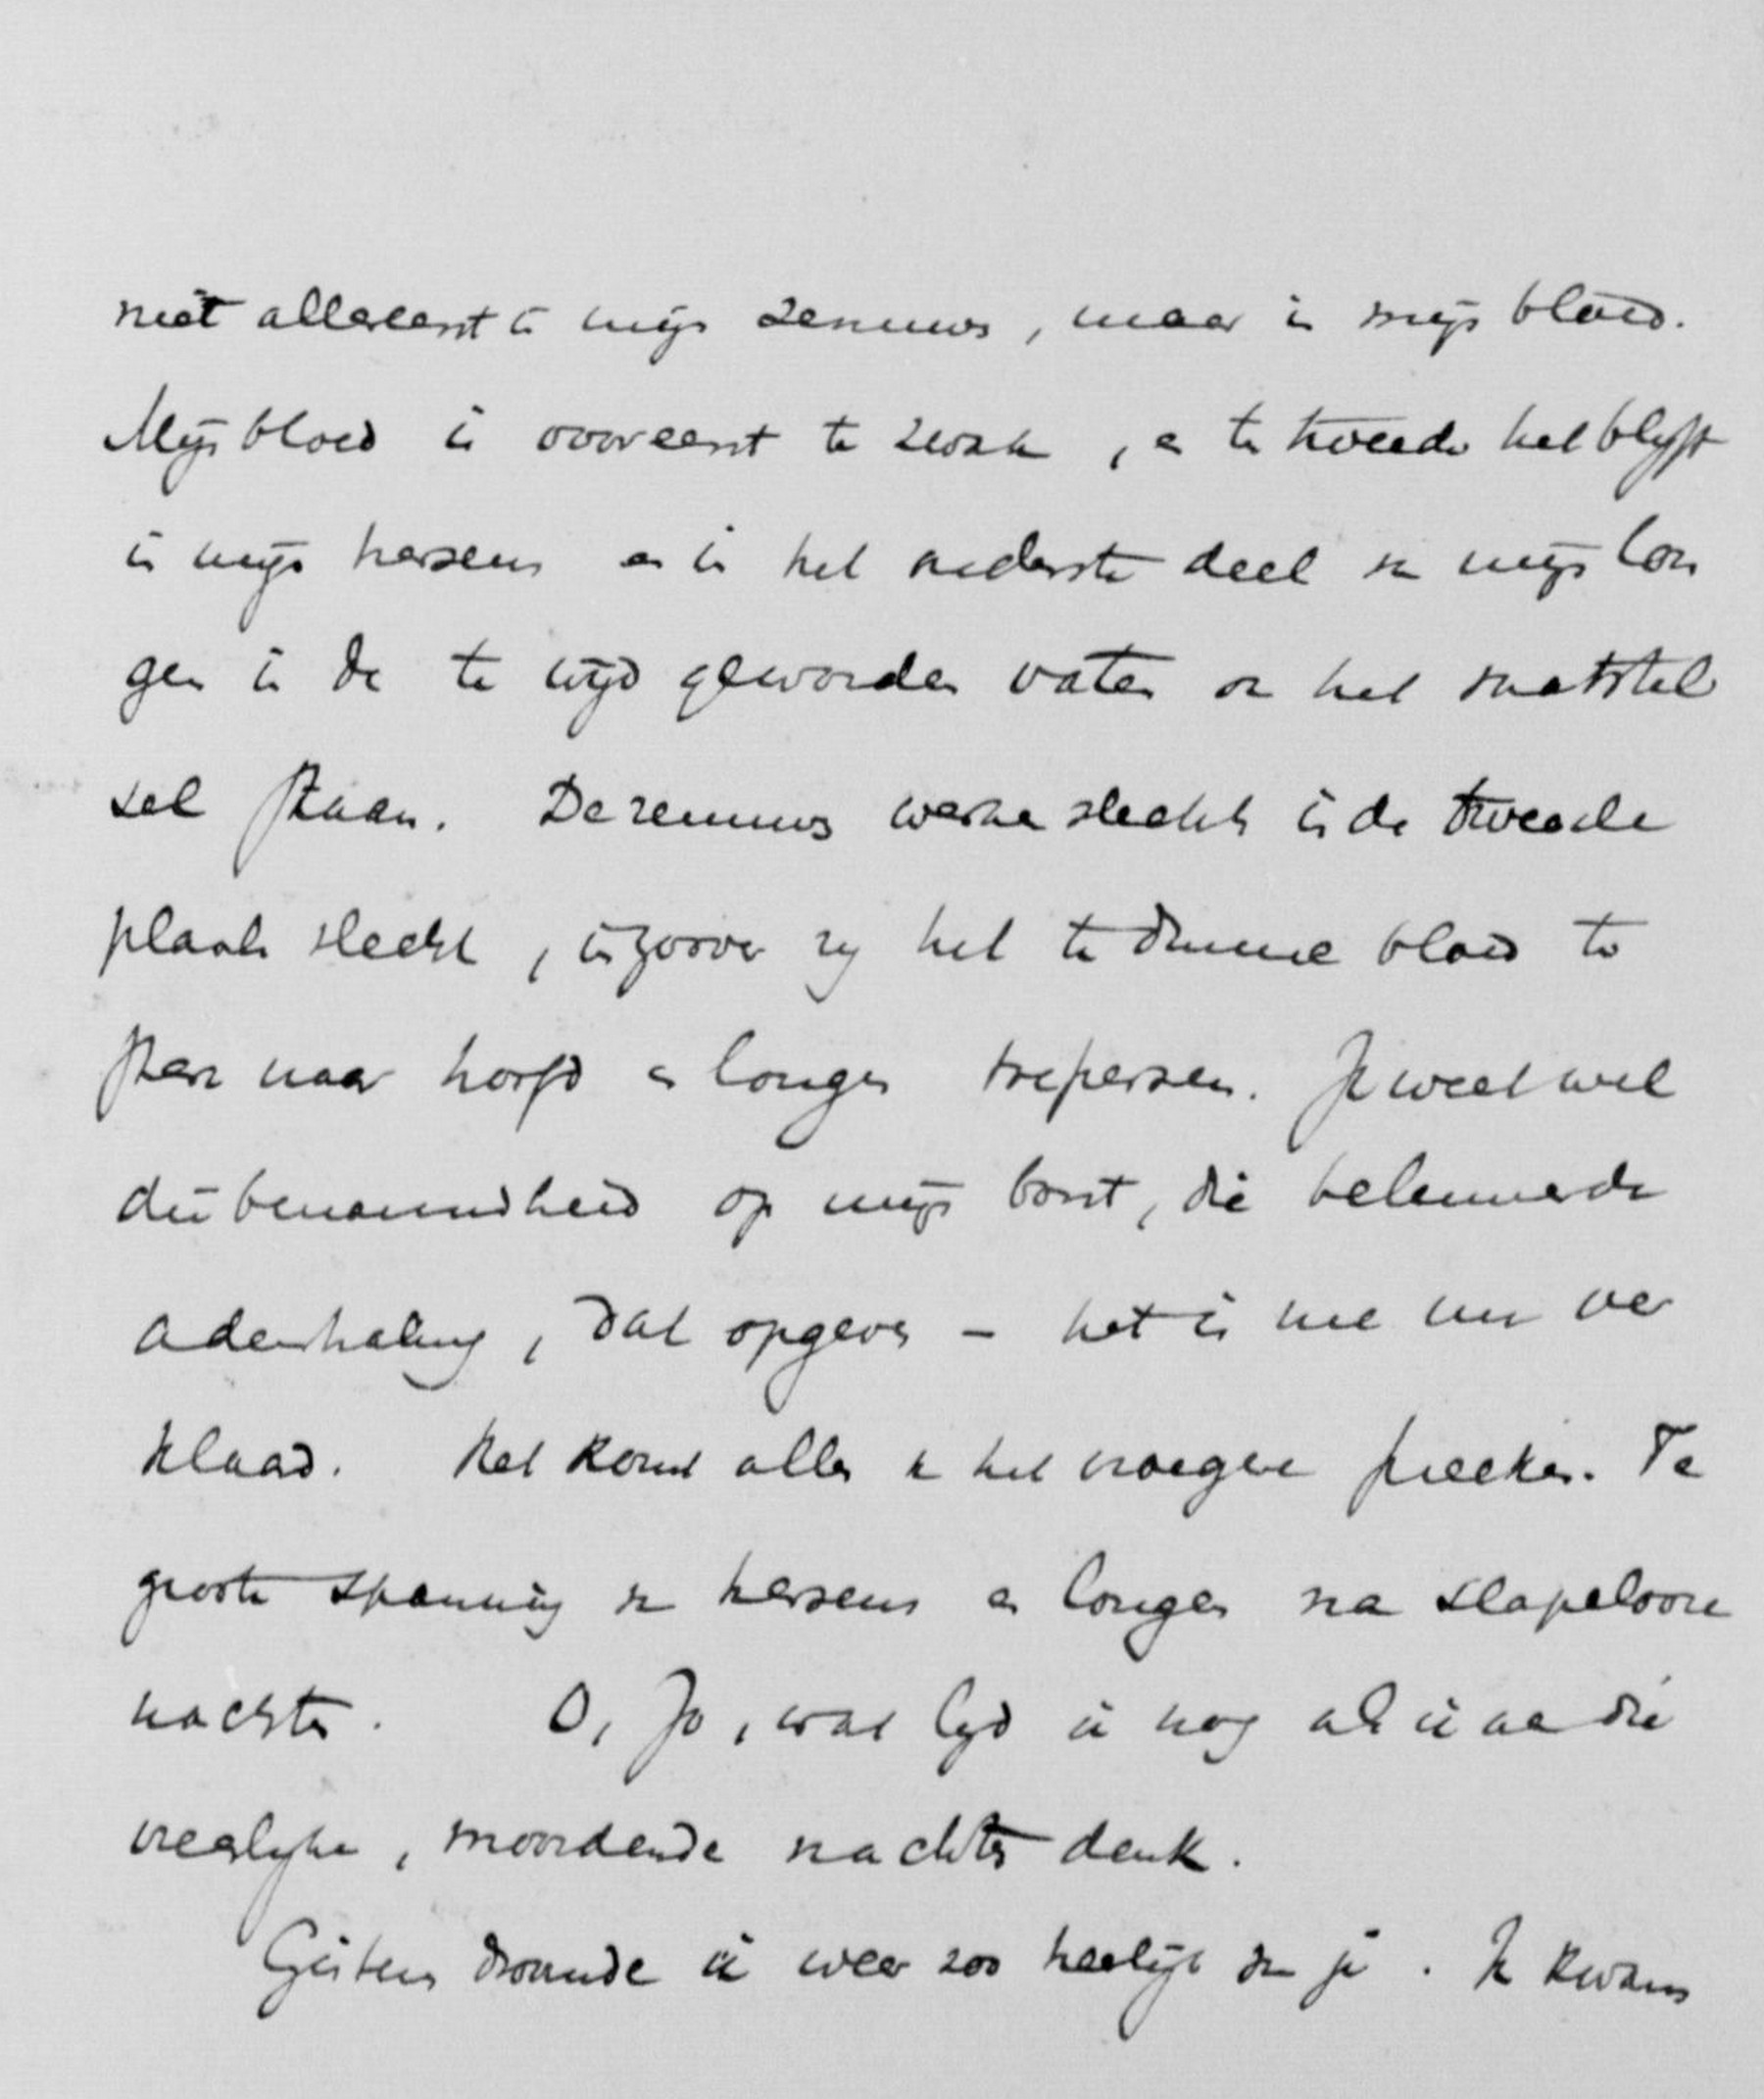 niet allereerst in mijn zenuws, maar in mijn bloed.
Mijn bloed is vooreerst te zwak, en ten tweede het blijft
in mijn hersens en in het onderste deel van mijn lon
gen in de te wijd geworden vaten van het vaatstel
sel staan. De zenuws werken slechts in de tweede
plaats slecht, inzoover zij het te dunne bloed te
sterk naar hoofd en longen toepersen. Je weet wel
die benauwdheid op mijn borst, die belemmerde
ademhaling, dat opgeven – het is me nu ver
klaard. Het komt alles van het vroegere. Te
groote spanning van hersens en longen na slapelooze
nachten. O, Jo, wat lijd ik nog als ik aan die
vreeslijke, moordende nachten denk.
Gisteren droomde ik weer zoo heerlijk van je. Ik kwam